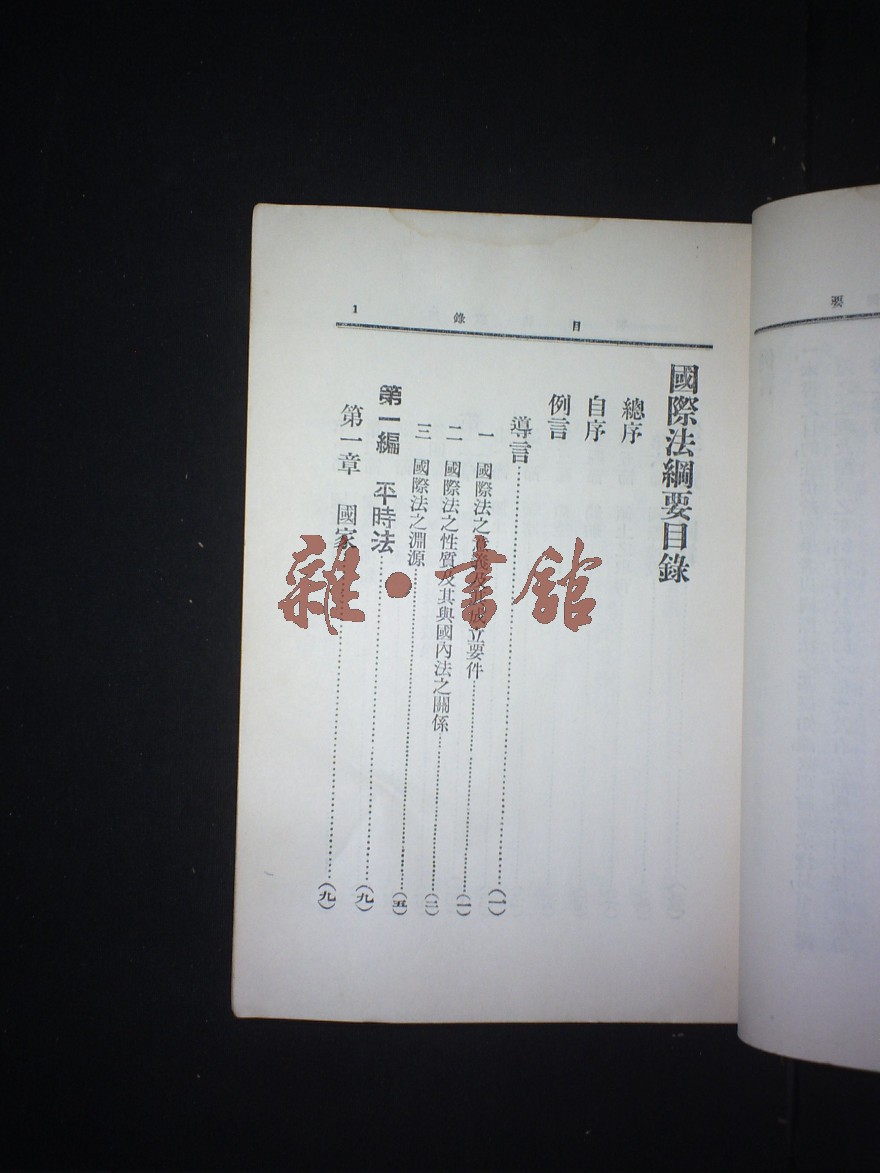 目錄 1
國際法綱要目錄
總序
自序
例言
導言……(一)
一 國際法之意義及其成立要件……(一)
二 國際法之性質及其與國內法之關係……(二)
三 國際法之淵源……(五)
第一編 平時法……(九)
第一章 國家……(九)
雜·書館
要